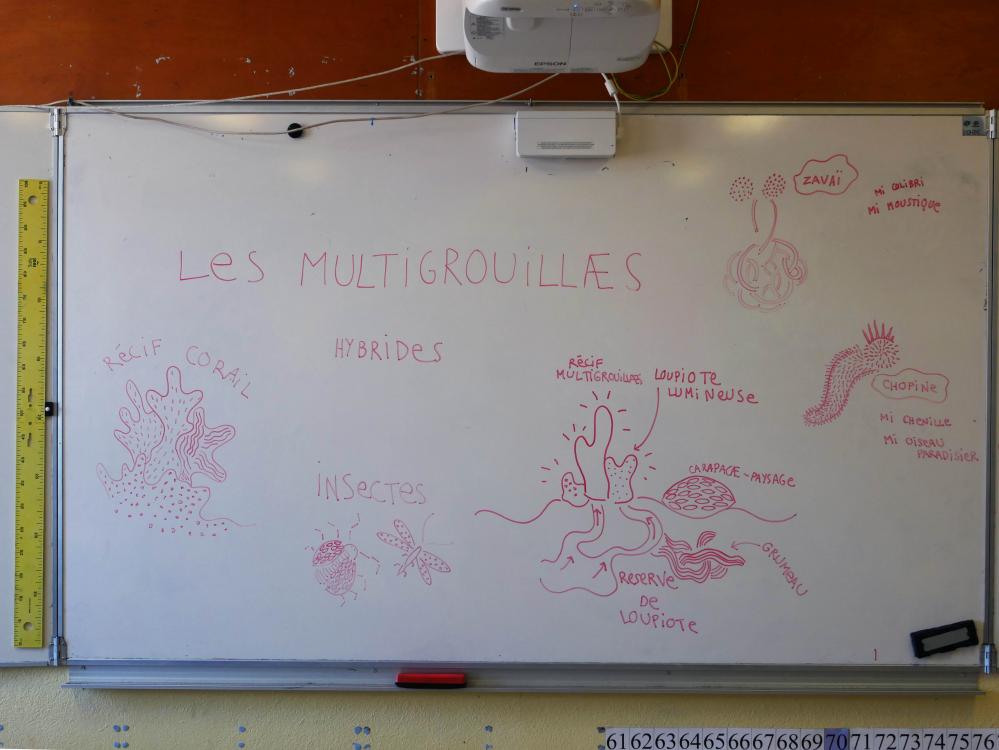 EPSON
ZAVAÏ
Mi COLIBRI
Mi MOUSTiQUE
LeS MULTiGROUiLLÆS
RÉCiF CORAiL
HYBRiDES
RÉCiF
MULTIGROUiLLÆS
LOUPiOTE
LUMiNeUSe
CHOPiNE
Mi CHENiLLE
Mi OiSEAU
PARADiSiER
CARAPACE-PAYSAGE
iNSeCTES
GRUMEAU
RESERVE
DE
LOUPiOTE
1
61 62 63 64 65 66 67 68 69 70 71 72 73 74 75 76